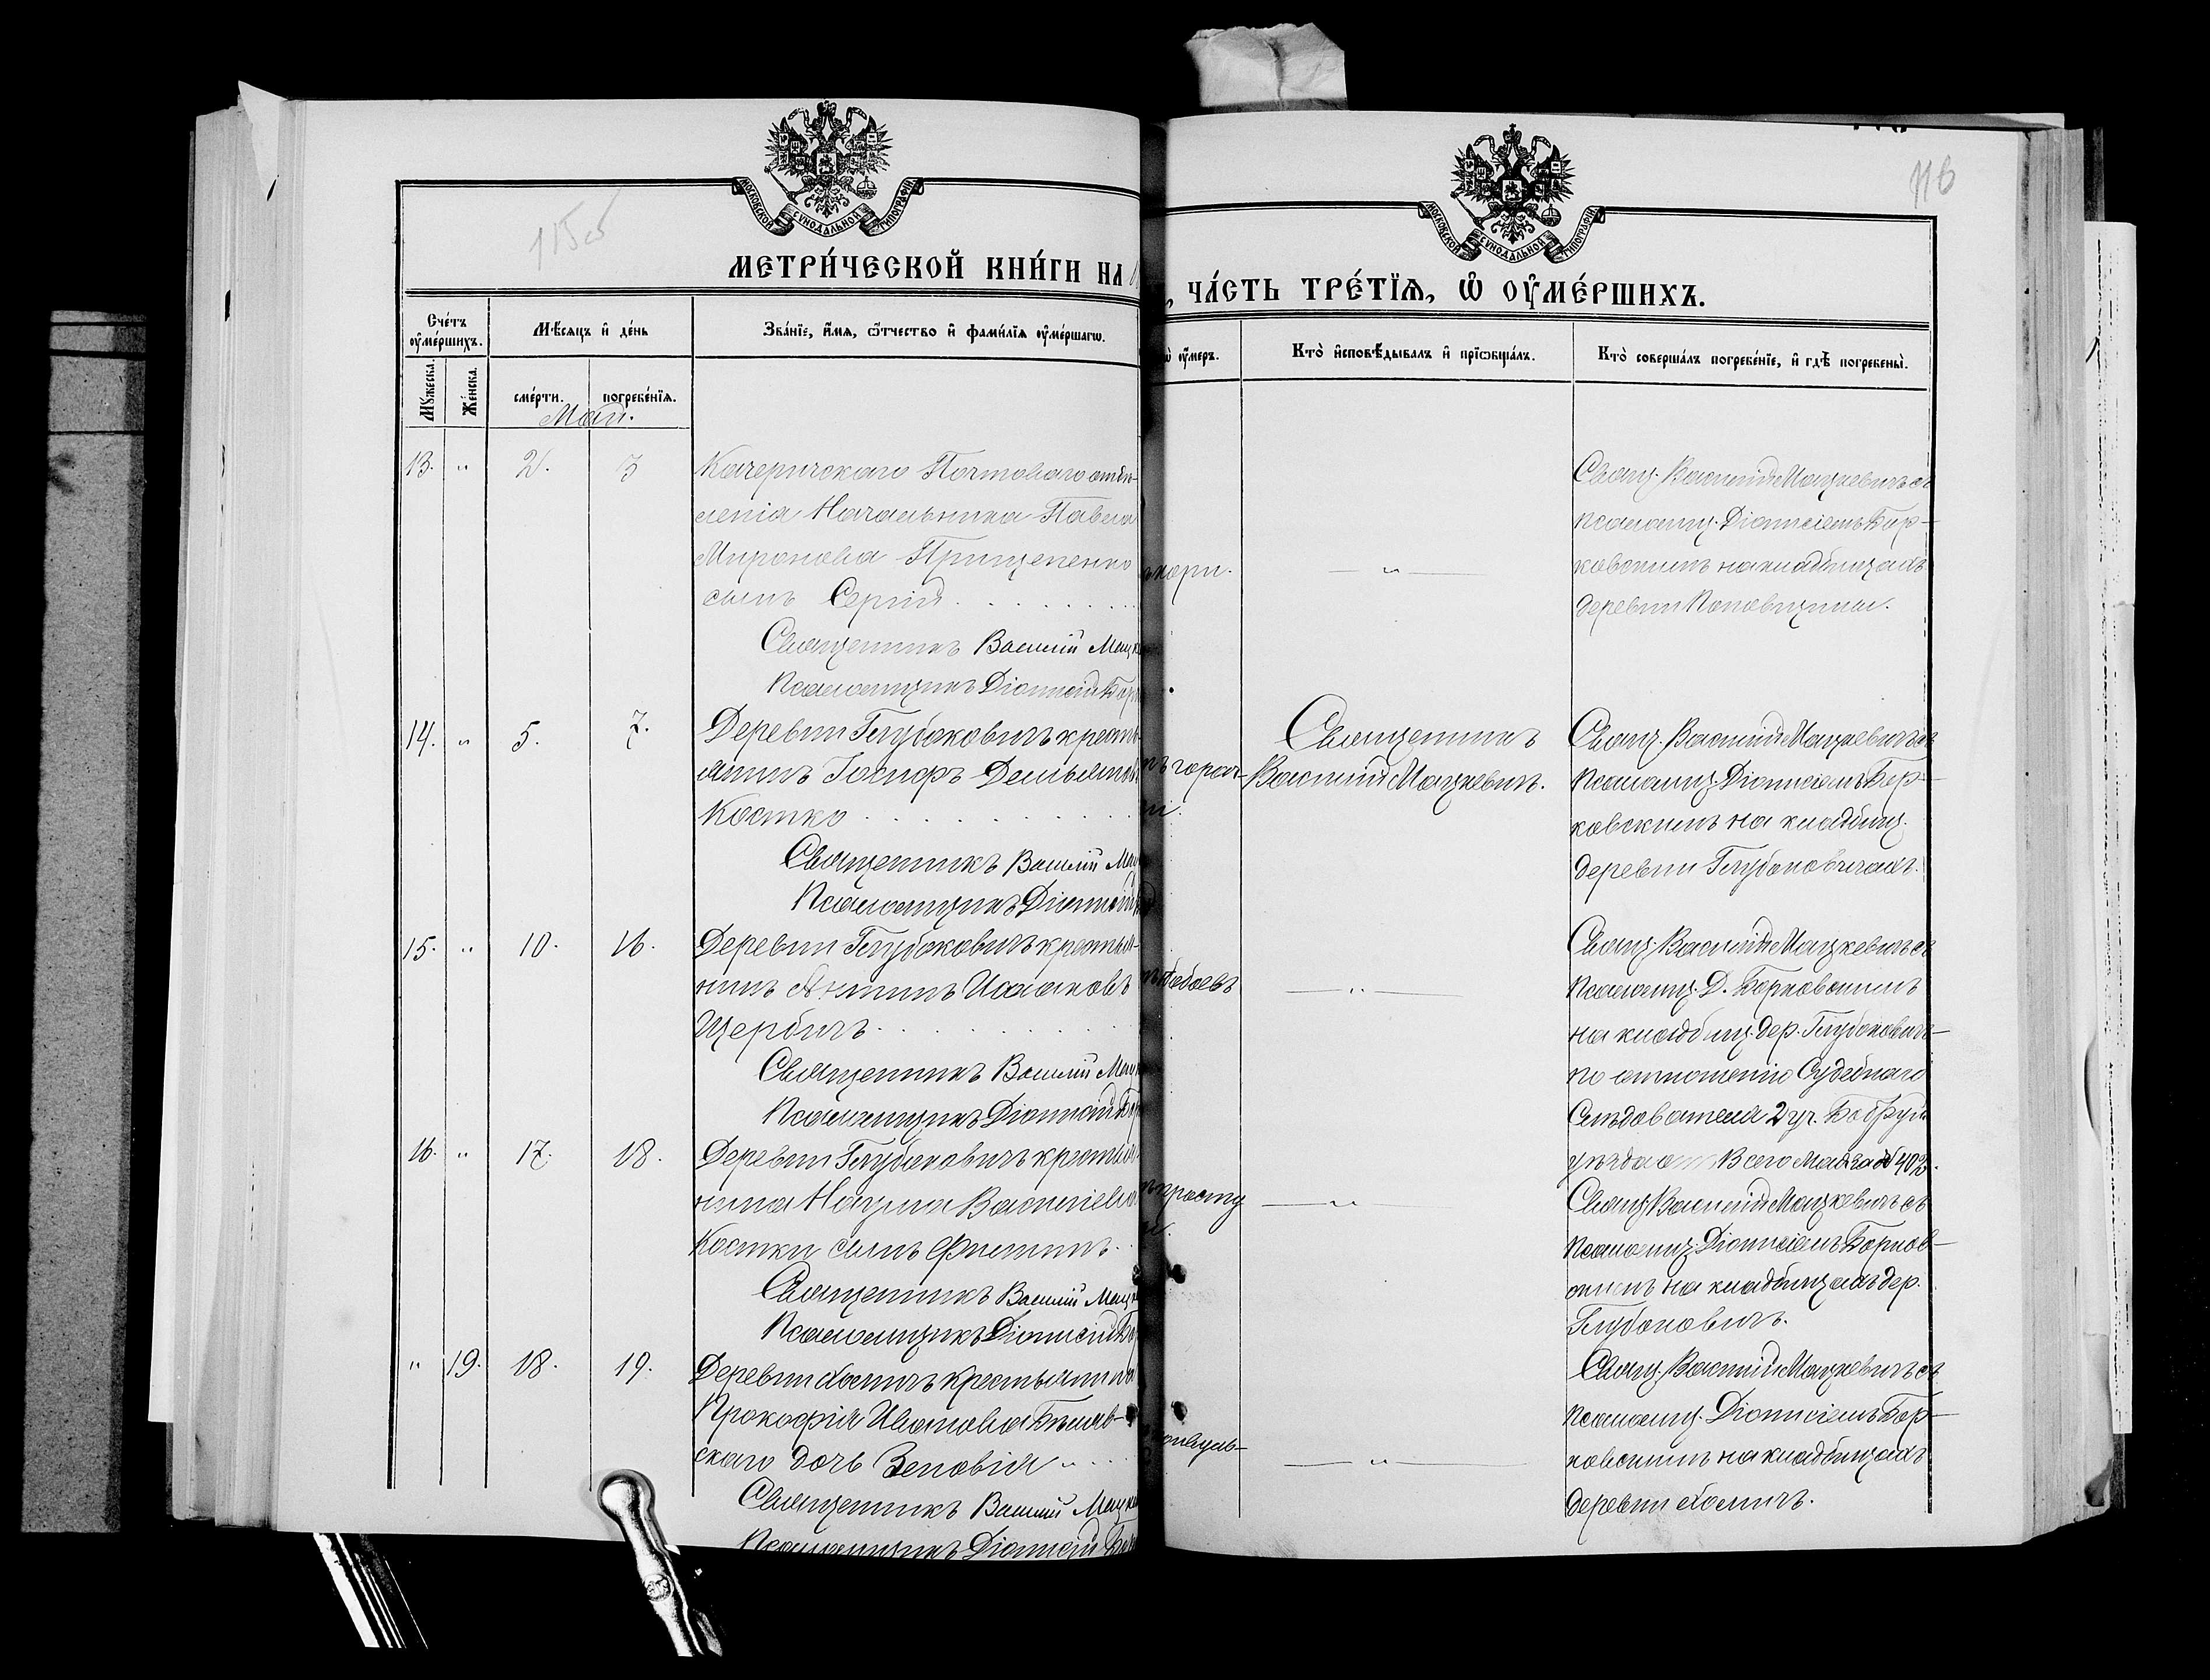 115об
116
МОСКОВСКОЙ СѴНОДАЛЬНОЙ ТИПОГРАФІИ
МОСКОВСКОЙ СѴНОДАЛЬНОЙ ТИПОГРАФІИ
МЕТРИ́ЧЕСКОЙ КНИ́ГИ НА
ЧА́СТЬ ТРЕ́ТЇѦ, Ѡ҆ ОУ҆МЕ́РШИХЪ.
Сче́тъ оу҆ме́ршихъ.
Мꙋжеска.
Же́нска.
Мѣ́сяцъ и҆ де́нь
сме́рти.
погребе́нїѧ.
Зва́нїе, и҆́мѧ, ѻ҆́тчество и҆ фами́лїѧ оу҆ме́ршагѡ.
оу҆́меръ.
Кто̀ и҆сповѣ́дывалъ и҆ прїѡбща́лъ.
Кто̀ соверша́лъ погребе́нїе, и҆ гдѣ̀ погребены̀.
Май.
13. „ 2. 3
Качеричскаго Почтоваго отдѣ-
ленія Начальника Павла
Миронова Прищепенко
сынъ Сергій
Священникъ Василій Мацке
Псаломщикъ Діонисій Бор
кори.
— „ —
Свящ. Василій Мацкевичъ съ
псаломщ. Діонисіемъ Бор-
ковскимъ на кладбищахъ
деревни Поповщины.
14. „ 5. 7.
Деревни Глубоковичъ кресть-
янинъ Іосифъ Демьяновъ
Костко
Священникъ Василій Мац
Псаломщикъ Діонисій
горяч-
Священникъ
Василій Мацкевичъ.
Свящ. Василій Мацкевичъ съ
Псаломщ. Діонисіемъ Бор-
ковскимъ на кладбищ.
деревни Глубоковичахъ.
15. „ 10. 16.
Деревни Глубоковичъ крестья-
нинъ Исааковъ
Щербичъ
Священникъ Василій Мац
Псаломщикъ Діонисій Бор
— „ —
Свящ. Василій Мацкевичъ съ
Псаломщ. Д. Борковскимъ
на кладбищ. дер. Глубоковичъ
по отношенію Судебнаго
Слѣдователя 2 уч. Бобруй
уѣзда 13 сего Мая за № 402.
16. „ 17. 18.
Деревни Глубоковичъ крестья-
нина Наума Васильева
Костки сынъ Филиппъ
Священникъ Василій Мацк
Псаломщикъ Діонисій Бо
— „ —
Свящ. Василій Мацкевичъ съ
псаломщ. Діонисіемъ Борков-
скимъ на кладбищахъ дер.
Глубоковичъ.
„ 19. 18. 19.
Деревни Хомичъ крестьянина
Прокофія Иванова Бѣляв-
скаго дочь Зеновія
Священникъ Василій Мацке
Псаломщикъ Діонисій Бор
— „ —
Свящ. Василій Мацкевичъ съ
псаломщ. Діонисіемъ Бор-
ковскимъ на кладбищахъ
деревни Хомичъ.